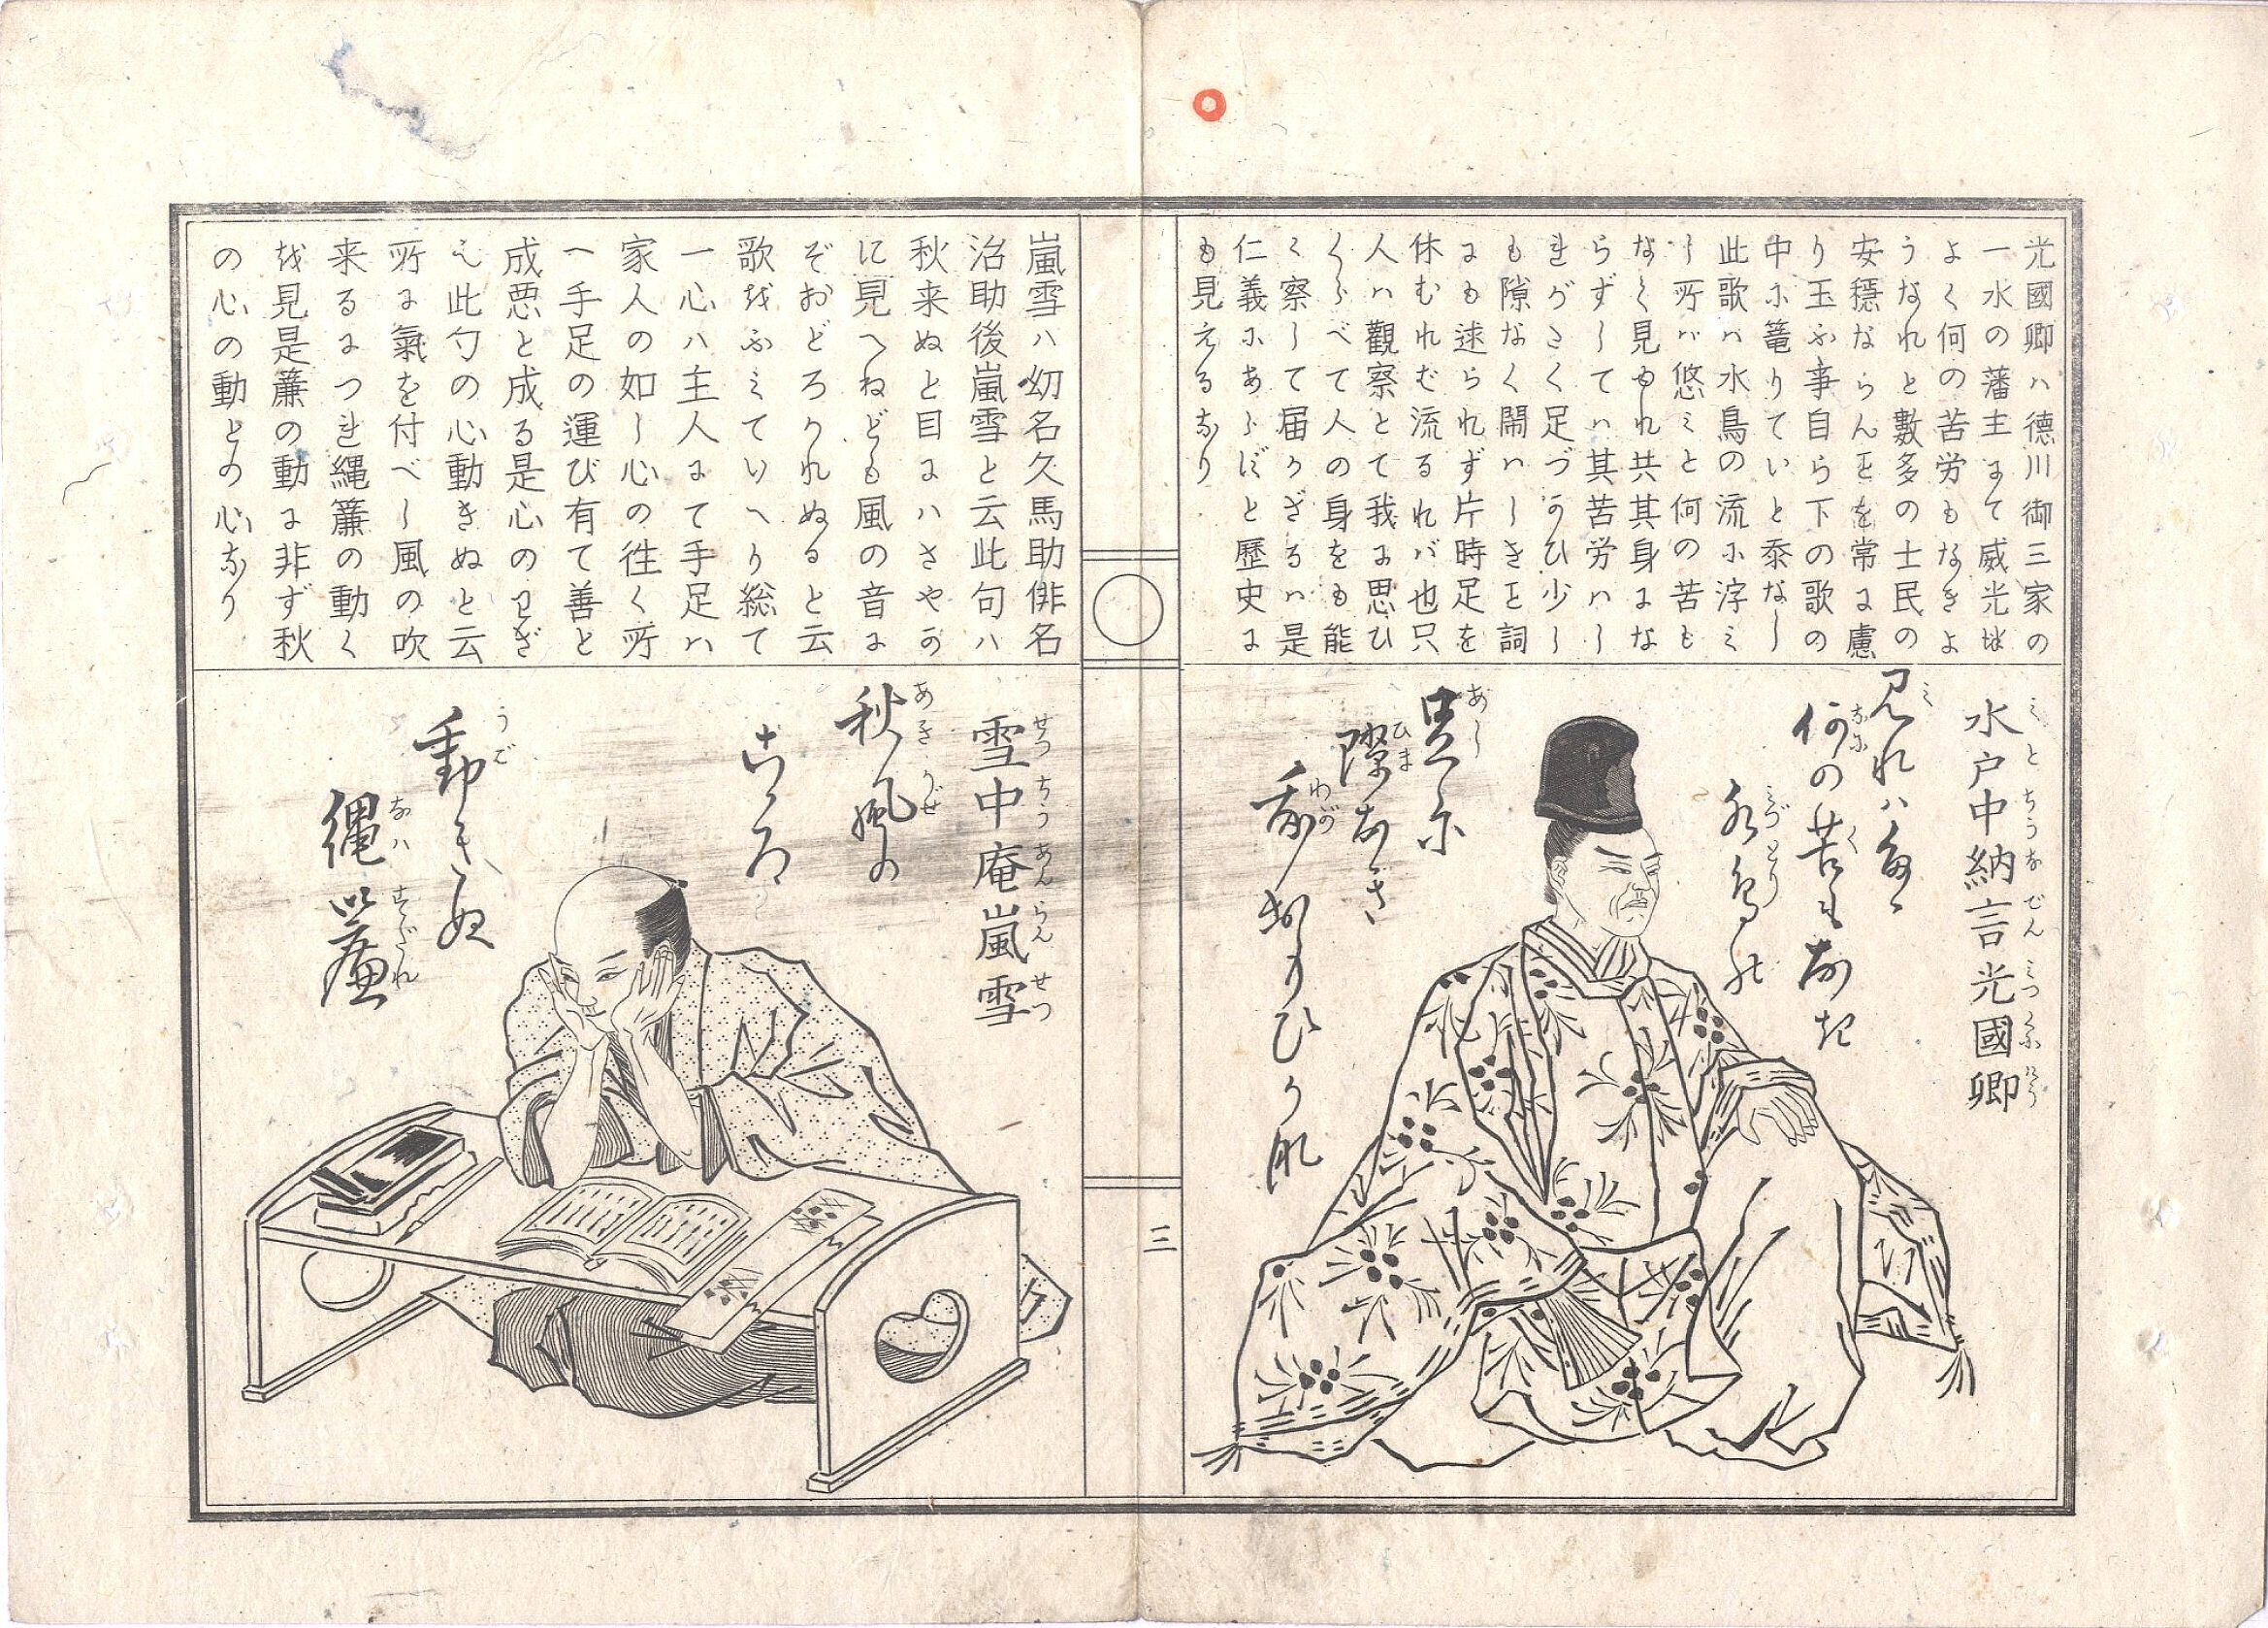 光國卿ハ徳川御三家の
一水の藩主にて威光はつ
よく何の苦労もなきよ
うなれと數多の士民の
安穏ならんを常に慮
り玉ふ事自ら下の歌の
中に篭りていと忝なし
此歌ハ水鳥の流に浮ミ
し所ハ悠ミと何の苦も
なく見ゆれ共其身にな
らずしてハ其苦労ハし
れがたく足づかひ少し
も隙なく鬧ハしきを詞
にも述られず片時足を
休むれむ流るれバ也只
人ハ觀察とて我に思ひ
くらべて人の身をも能
く察して届かざるハ是
仁義にあらずと歴史に
も見えるなり
水戸中納言光國卿
みとちうなごんみつくにけう
見れハたゝ
何の苦もなき
水鳥の
あしに
隙なき
我おもひかな
三
嵐雪ハ幼名久馬助俳名
治助後嵐雪と云此句ハ
秋来ぬと目にハさやか
に見へねども風の音に
ぞおどろかれぬると云
歌をふミていへり総て
一心ハ主人にて手足ハ
家人の如し心の往く所
へ手足の運び有て善と
成悪と成る是心のわざ
也此句の心動きぬと云
所に氣を付べし風の吹
来るにつれ縄簾の動く
を見是簾の動に非ず秋
の心の動との心なり
雪中庵嵐雪
せつちうあんらんせつ
秋風の
あきかぜ
こゝろ
動きぬ
うご
縄簾
なハすだれ